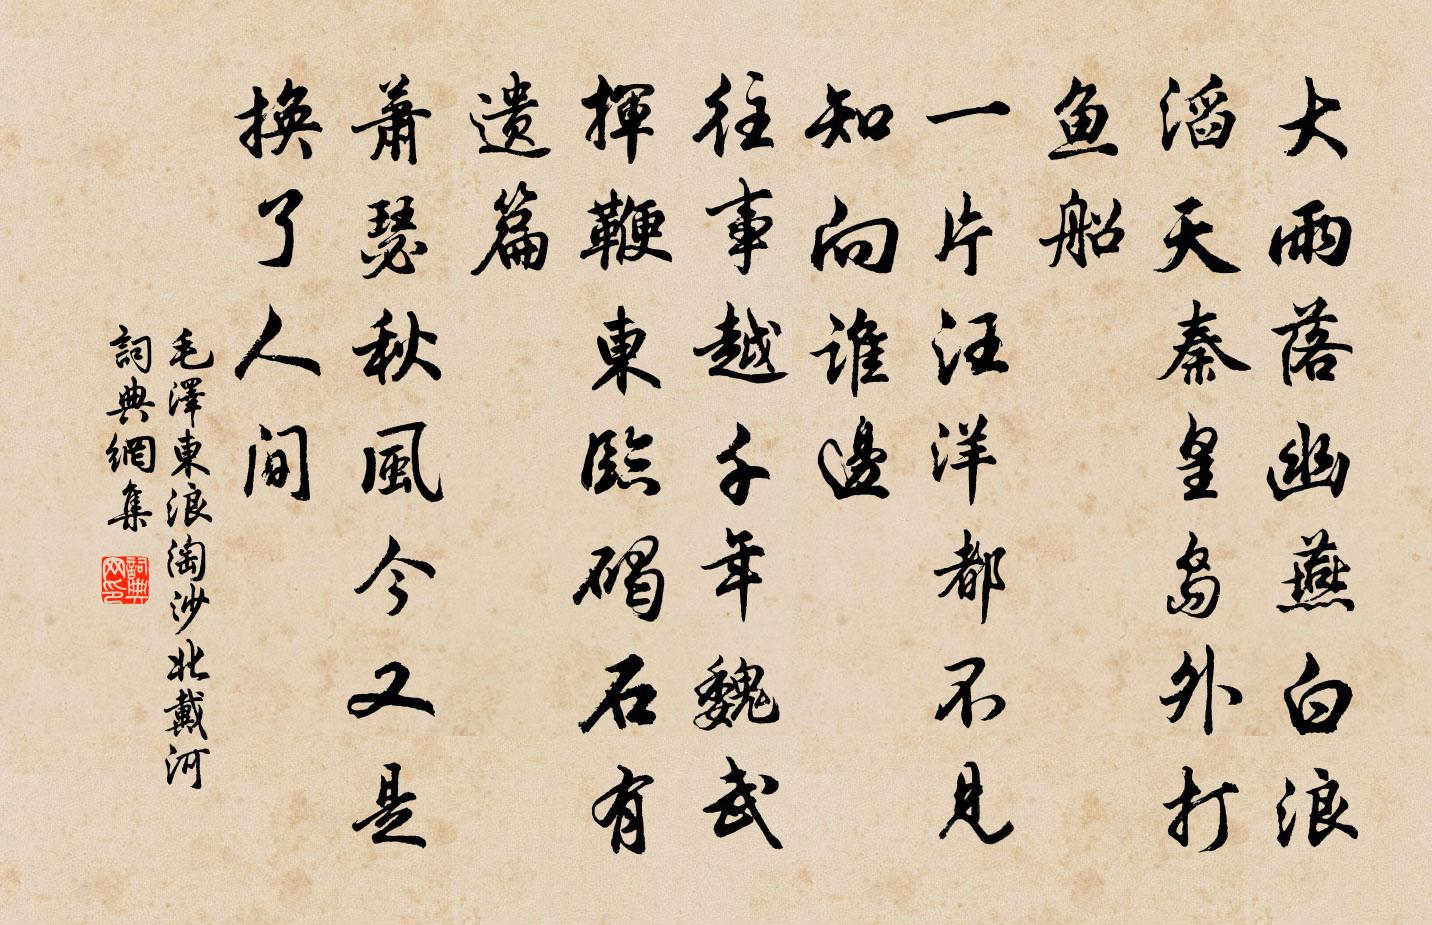 大雨落幽燕白浪
滔天秦皇島外打
鱼船
一片汪洋都不見
知向誰邊
往事越千年魏武
揮鞭東臨碣石有
遺篇
蕭瑟秋風今又是
換了人間
毛澤東浪淘沙北戴河
詞典網集
詞典网印